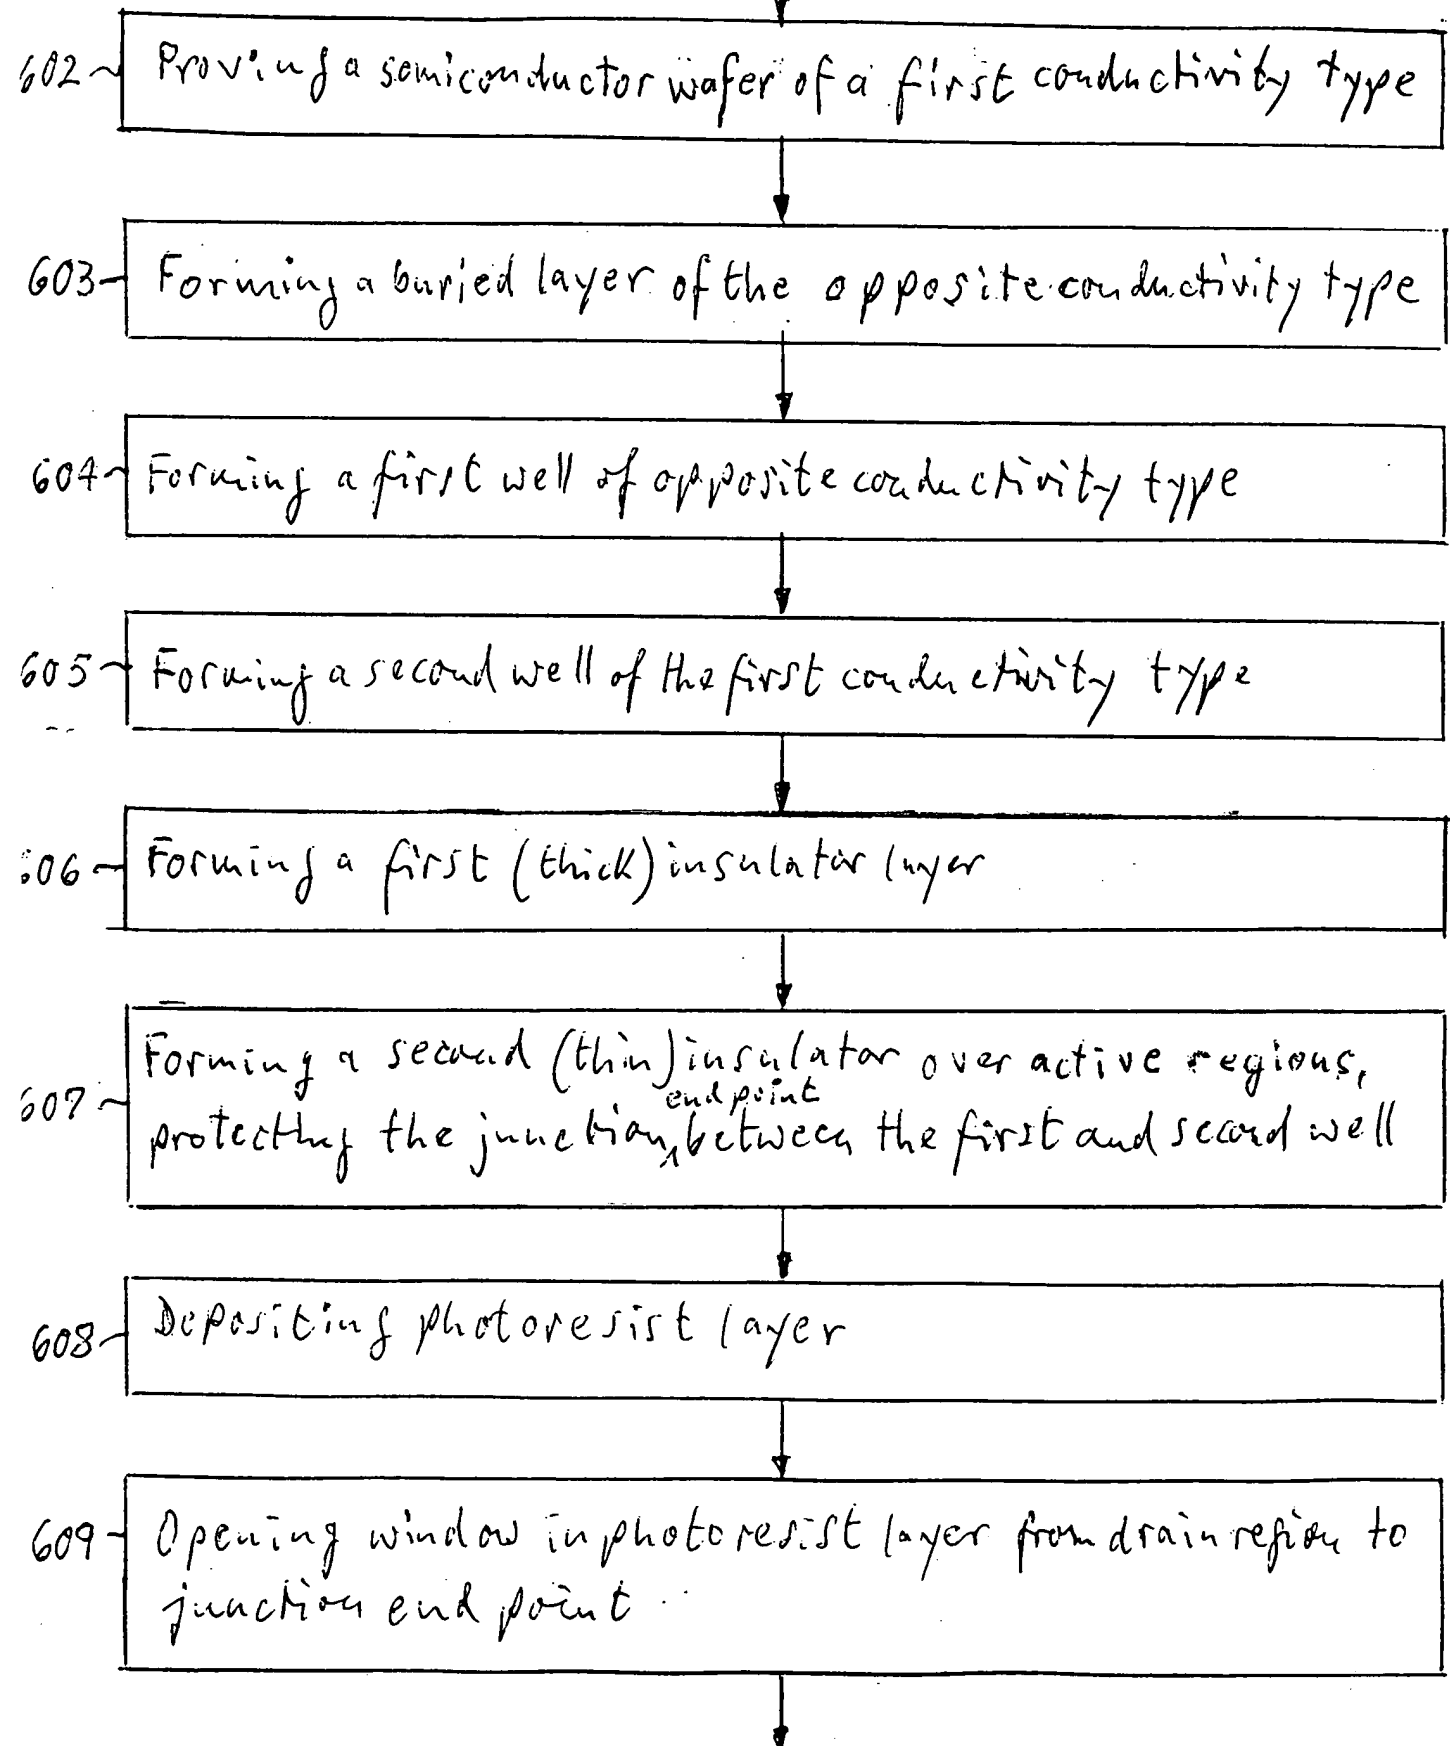 602
Proving a semiconductor wafer of a first conductivity type
603
Forming a buried layer of the opposite conductivity type
604
Forming a first well of opposite conductivity type
605
Forming a second well of the first conductivity type
606
Forming a first (thick) insulator layer
607
Forming a second (thin) insulator over active regions,
end point
protecting the junction ^ between the first and second well
608
Depositing photoresist layer
609
Opening window in photoresist layer from drain region to
junction end point